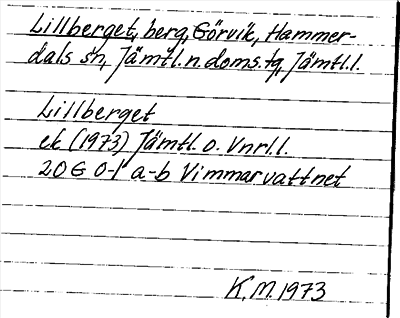 Lillberget, berg, Görvik, Hammer-
dals sn, Jämtl.n.doms.tg, Jämtl.l.
Lillberget
ek (1973) Jämtl. o. Vnrl.l.
20G 0-1 a-b Vimmarvattnet
K.M.1973